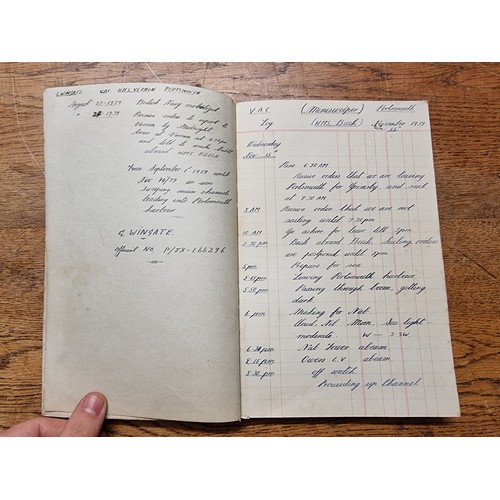 G WINGATE V.A.C. H.M.S. VERNON PORTSMOUTH
August 23-1939 British Navy mobilized
" 24 1939 Receive orders to report to
Vernon by Midnight
leave at
and told to
aboard HMS
From September 1st 1939 until
Nov 14/39 as
Sweeping main channel
leading into Portsmouth
harbour
G WINGATE
Official NO. P/JX-166296
V.A.C. (Minesweeper) Portsmouth
Log (HMS Beech) November 1939
Wednesday
Nov 15th
Rise 6.30 AM
Receive orders that we are leaving
Portsmouth for Grimsby, and sail
at 8.30 AM
8 AM Receive order that we are not
sailing until 2.30 pm
10 AM Go ashore for leave till 2 pm
2.30 pm Back aboard Beech, Sailing orders
are postponed until 5 pm
5 pm Prepare for sea
5.15 pm Leaving Portsmouth harbour
5.50 pm Passing through boom, getting
dark.
6 pm Making for Nab
Cloud, Nil Moon, Sea light-
moderate W — SSW
6.30 pm Nab Tower abeam
8.15 pm Owers L.V abeam
8.30 pm off watch
Proceeding up Channel